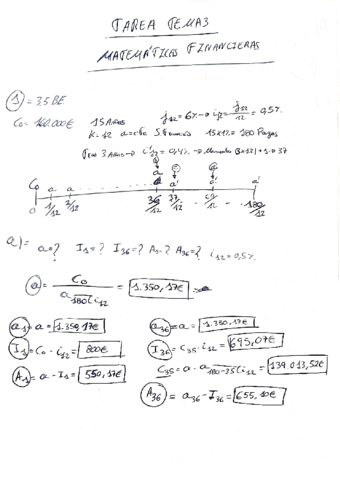 TAREA TEMA3
MATEMÁTICAS FINANCIERAS
1) = 35 BE
C₀ = 160.000€ 15 Años j₁₂ = 6% → i₁₂ = j₁₂/12 = 0,5%
K = 12 a = cte S. Francés 15x12 = 180 Pagos
Tras 3 Años → i'₁₂ = 0,4% → Momento (3x12) + 1 → 37
C₀ a a a a' a' a'
0 1/12 2/12 36/12 37/12 180/12
a) = a = ? I₁ = ? I₃₆ = ? A₁ = ? A₃₆ = ? i₁₂ = 0,5%
a = C₀ / a 180 i₁₂ = 1.350,17€
a₁ = a = 1.350,17€ a₃₆ = a = 1.350,17€
I₁ = C₀ · i₁₂ = 800€ I₃₆ = C₃₅ · i₁₂ = 695,07€
A₁ = a - I₁ = 550,17€ C₃₅ = a · a 180-35 i₁₂ = 139.013,52€
A₃₆ = a₃₆ - I₃₆ = 655,10€